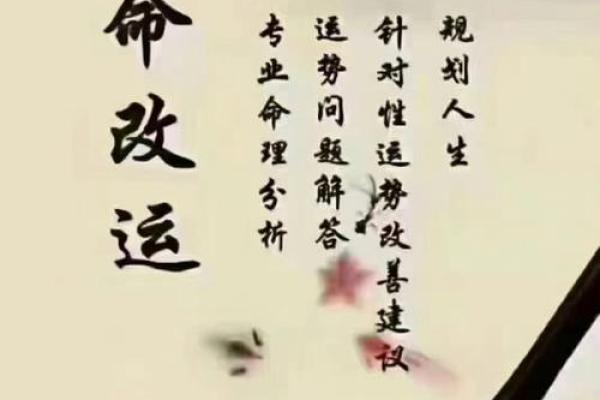 命改运
专业命理分析
运势问题解答
针对性运势改善建议
规划人生